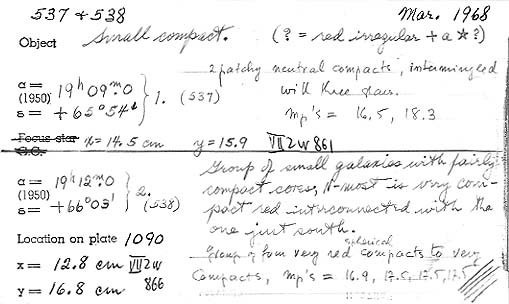 537 & 538 Mar. 1968
Object Small compact. (? = red irregular + a ☆?)
α = 19ʰ09ᵐ.0
(1950) 1. (537)
δ = +65°54'
2 patchy neutral compacts, intermingled
with three stars.
mp's = 16.5, 18.3
Focus star x = 14.5 cm y = 15.9 VII Zw 861
C.C.
α = 19ʰ12ᵐ.0
(1950) 2. (538)
δ = +66°03'
Group of small galaxies with fairly
compact cores, N-most is very com-
pact red interconnected with the
one just south.
Location on plate 1090
x = 12.8 cm VII Zw
y = 16.8 cm 866
spherical
Group of four very red compacts to very
compacts, mp's = 16.9, 17.5, 17.5, 17.5